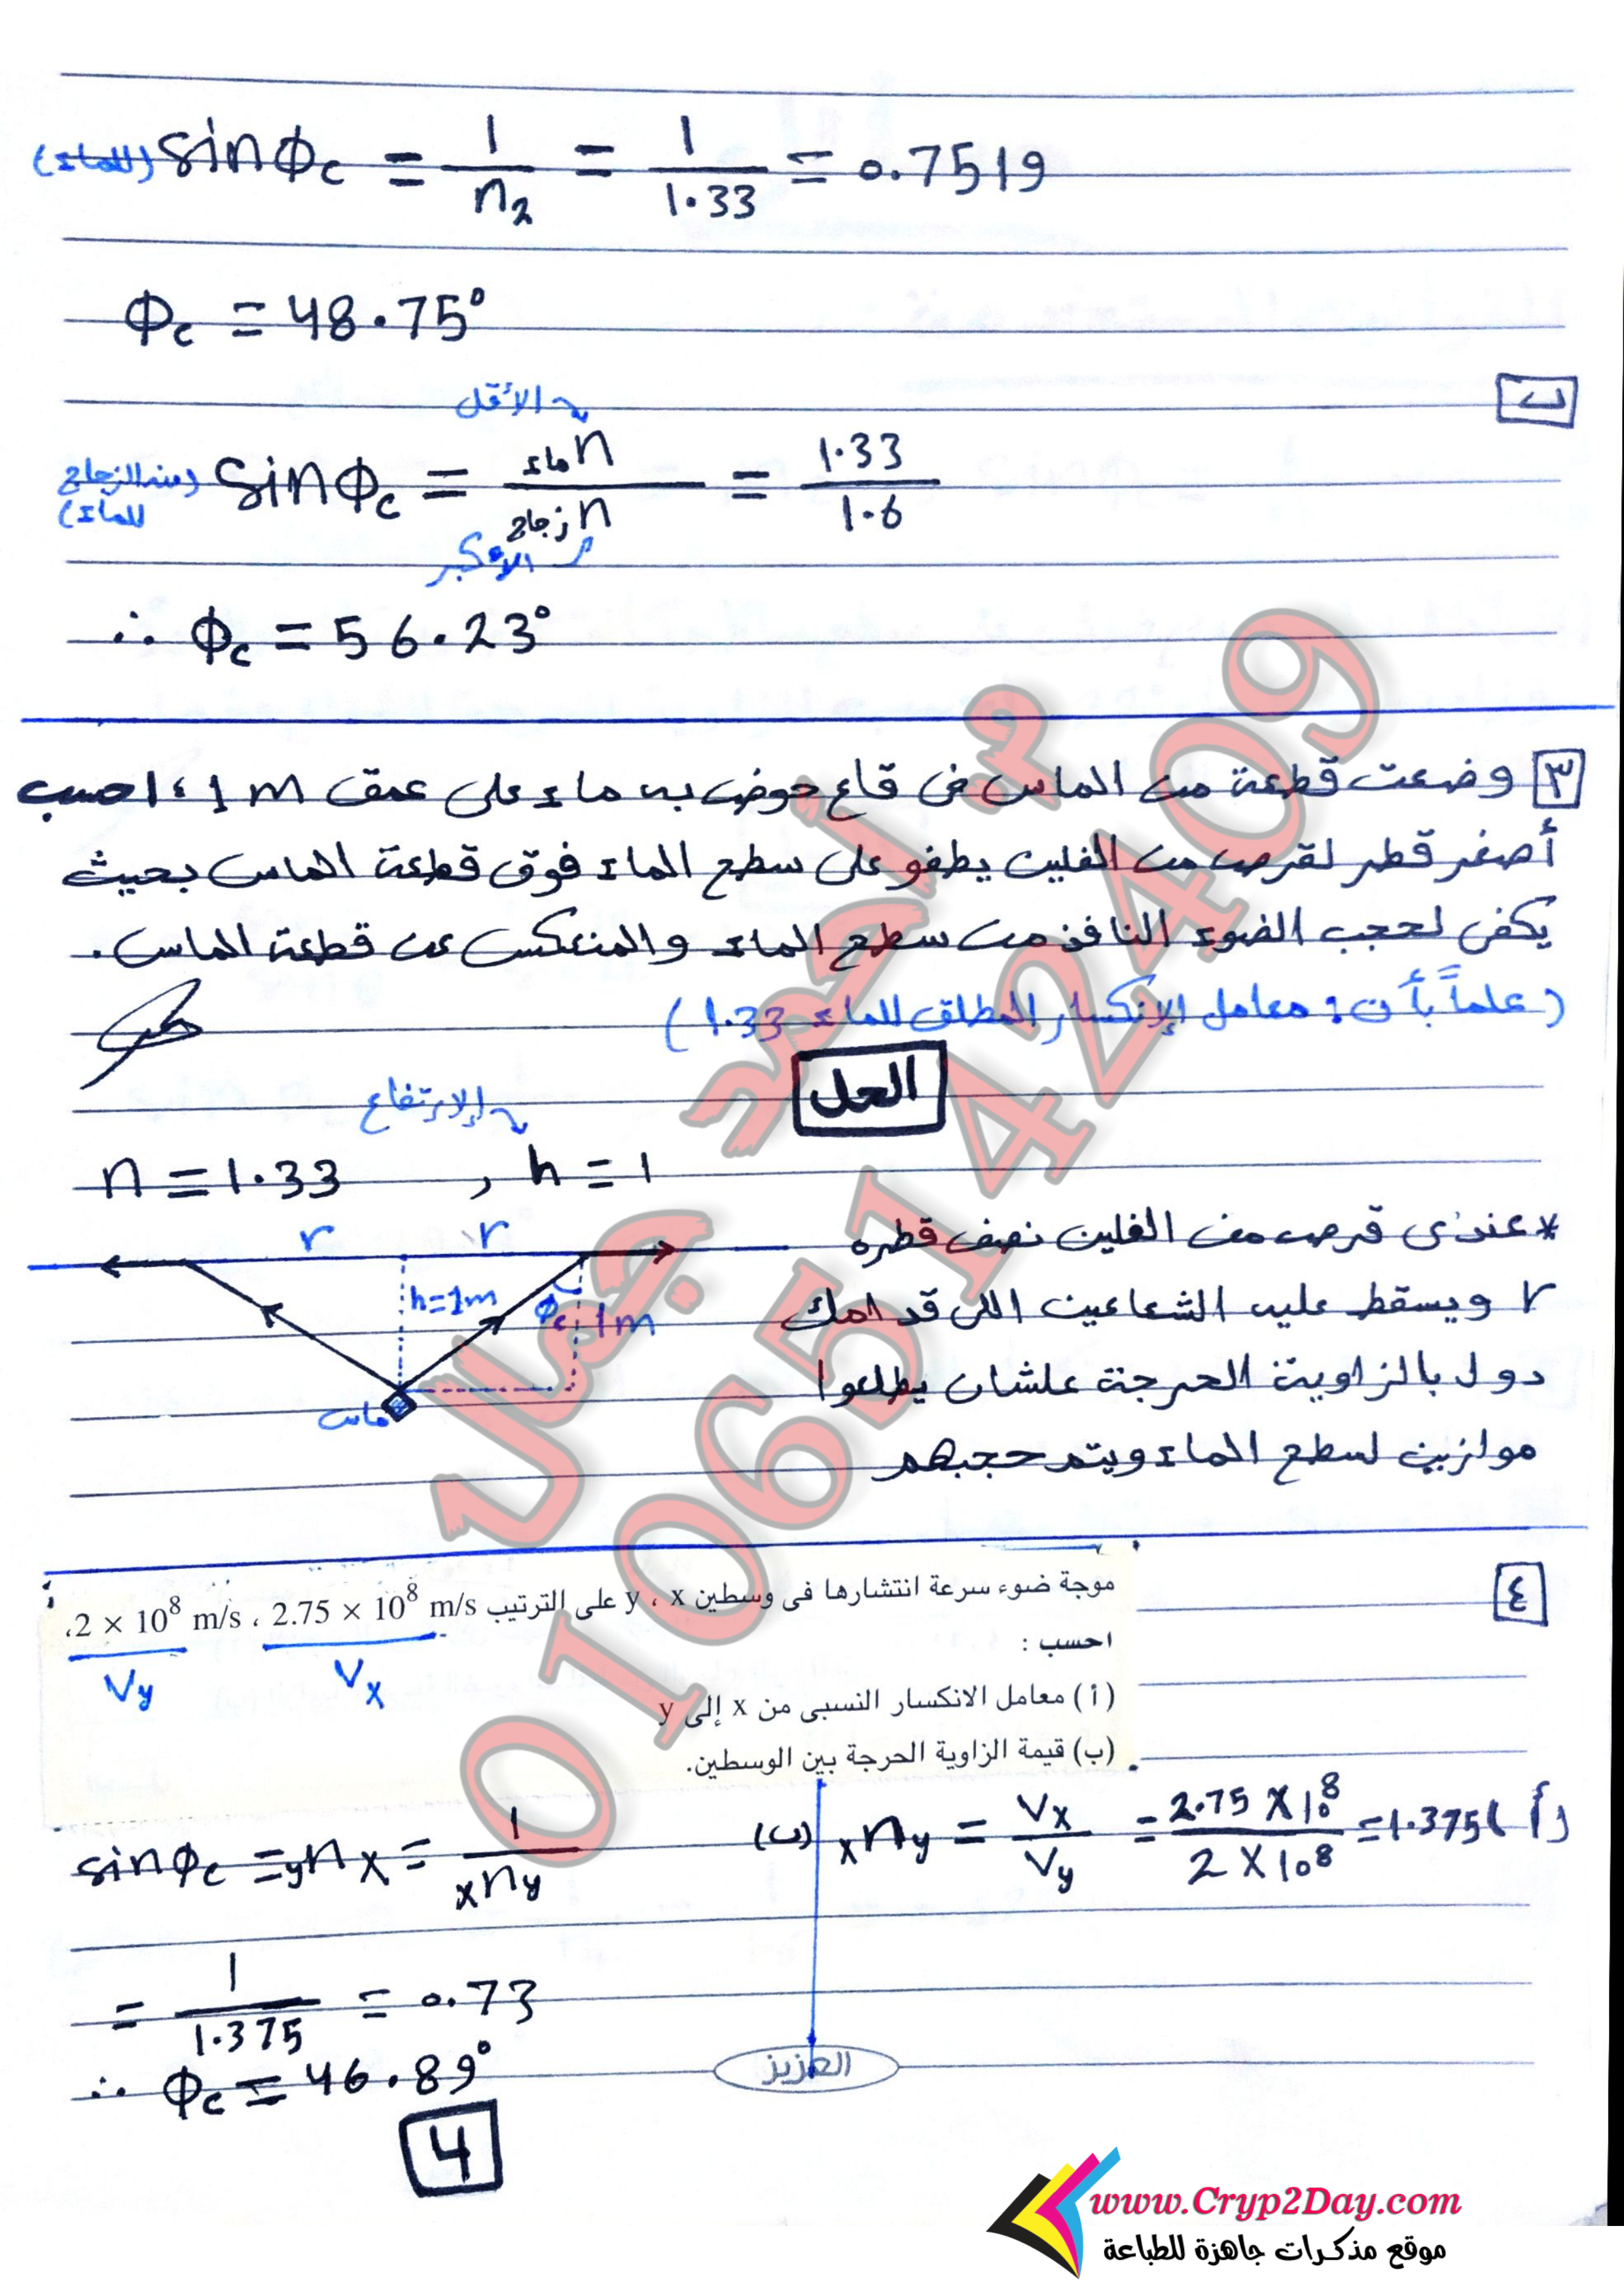 (للماء) sinϕc = 1/n2 = 1/1.33 = 0.7519
ϕc = 48.75°
ب
الأقل
(من الزجاج للماء) sinϕc = n ماء / n زجاج = 1.33/1.6
الأكبر
∴ ϕc = 56.23°
٣ وضعت قطعة من الماس فى قاع حوض به ماء على عمق 1 m ، احسب
أصغر قطر لقرص من الفلين يطفو على سطح الماء فوق قطعة الماس بحيث
يكفى لحجب الضوء النافذ من سطح الماء والمنعكس عن قطعة الماس.
(علماً بأن: معامل الإنكسار المطلق للماء 1.33)
الحل
الإرتفاع
n = 1.33 , h = 1
* عندى قرص من الفلين نصف قطره
r ويسقط عليه الشعاعين اللى قدامك
دول بالزاوية الحرجة علشان يطلعوا
موازيين لسطح الماء ويتم حجبهم
r r
h=1m ϕc 1m
ماس
٤
موجة ضوء سرعة انتشارها فى وسطين x ، y على الترتيب 2.75 × 10⁸ m/s ، 2 × 10⁸ m/s،
Vx Vy
احسب :
(أ) معامل الانكسار النسبى من x إلى y
(ب) قيمة الزاوية الحرجة بين الوسطين.
أ) xny = Vx/Vy = 2.75 X 10⁸ / 2 X 10⁸ = 1.375
(ب) sinϕc = ynx = 1/xny
= 1/1.375 = 0.73
∴ ϕc = 46.89°
العزيز
4
م/ أحمد جمال
01065142409
www.Cryp2Day.com
موقع مذكرات جاهزة للطباعة